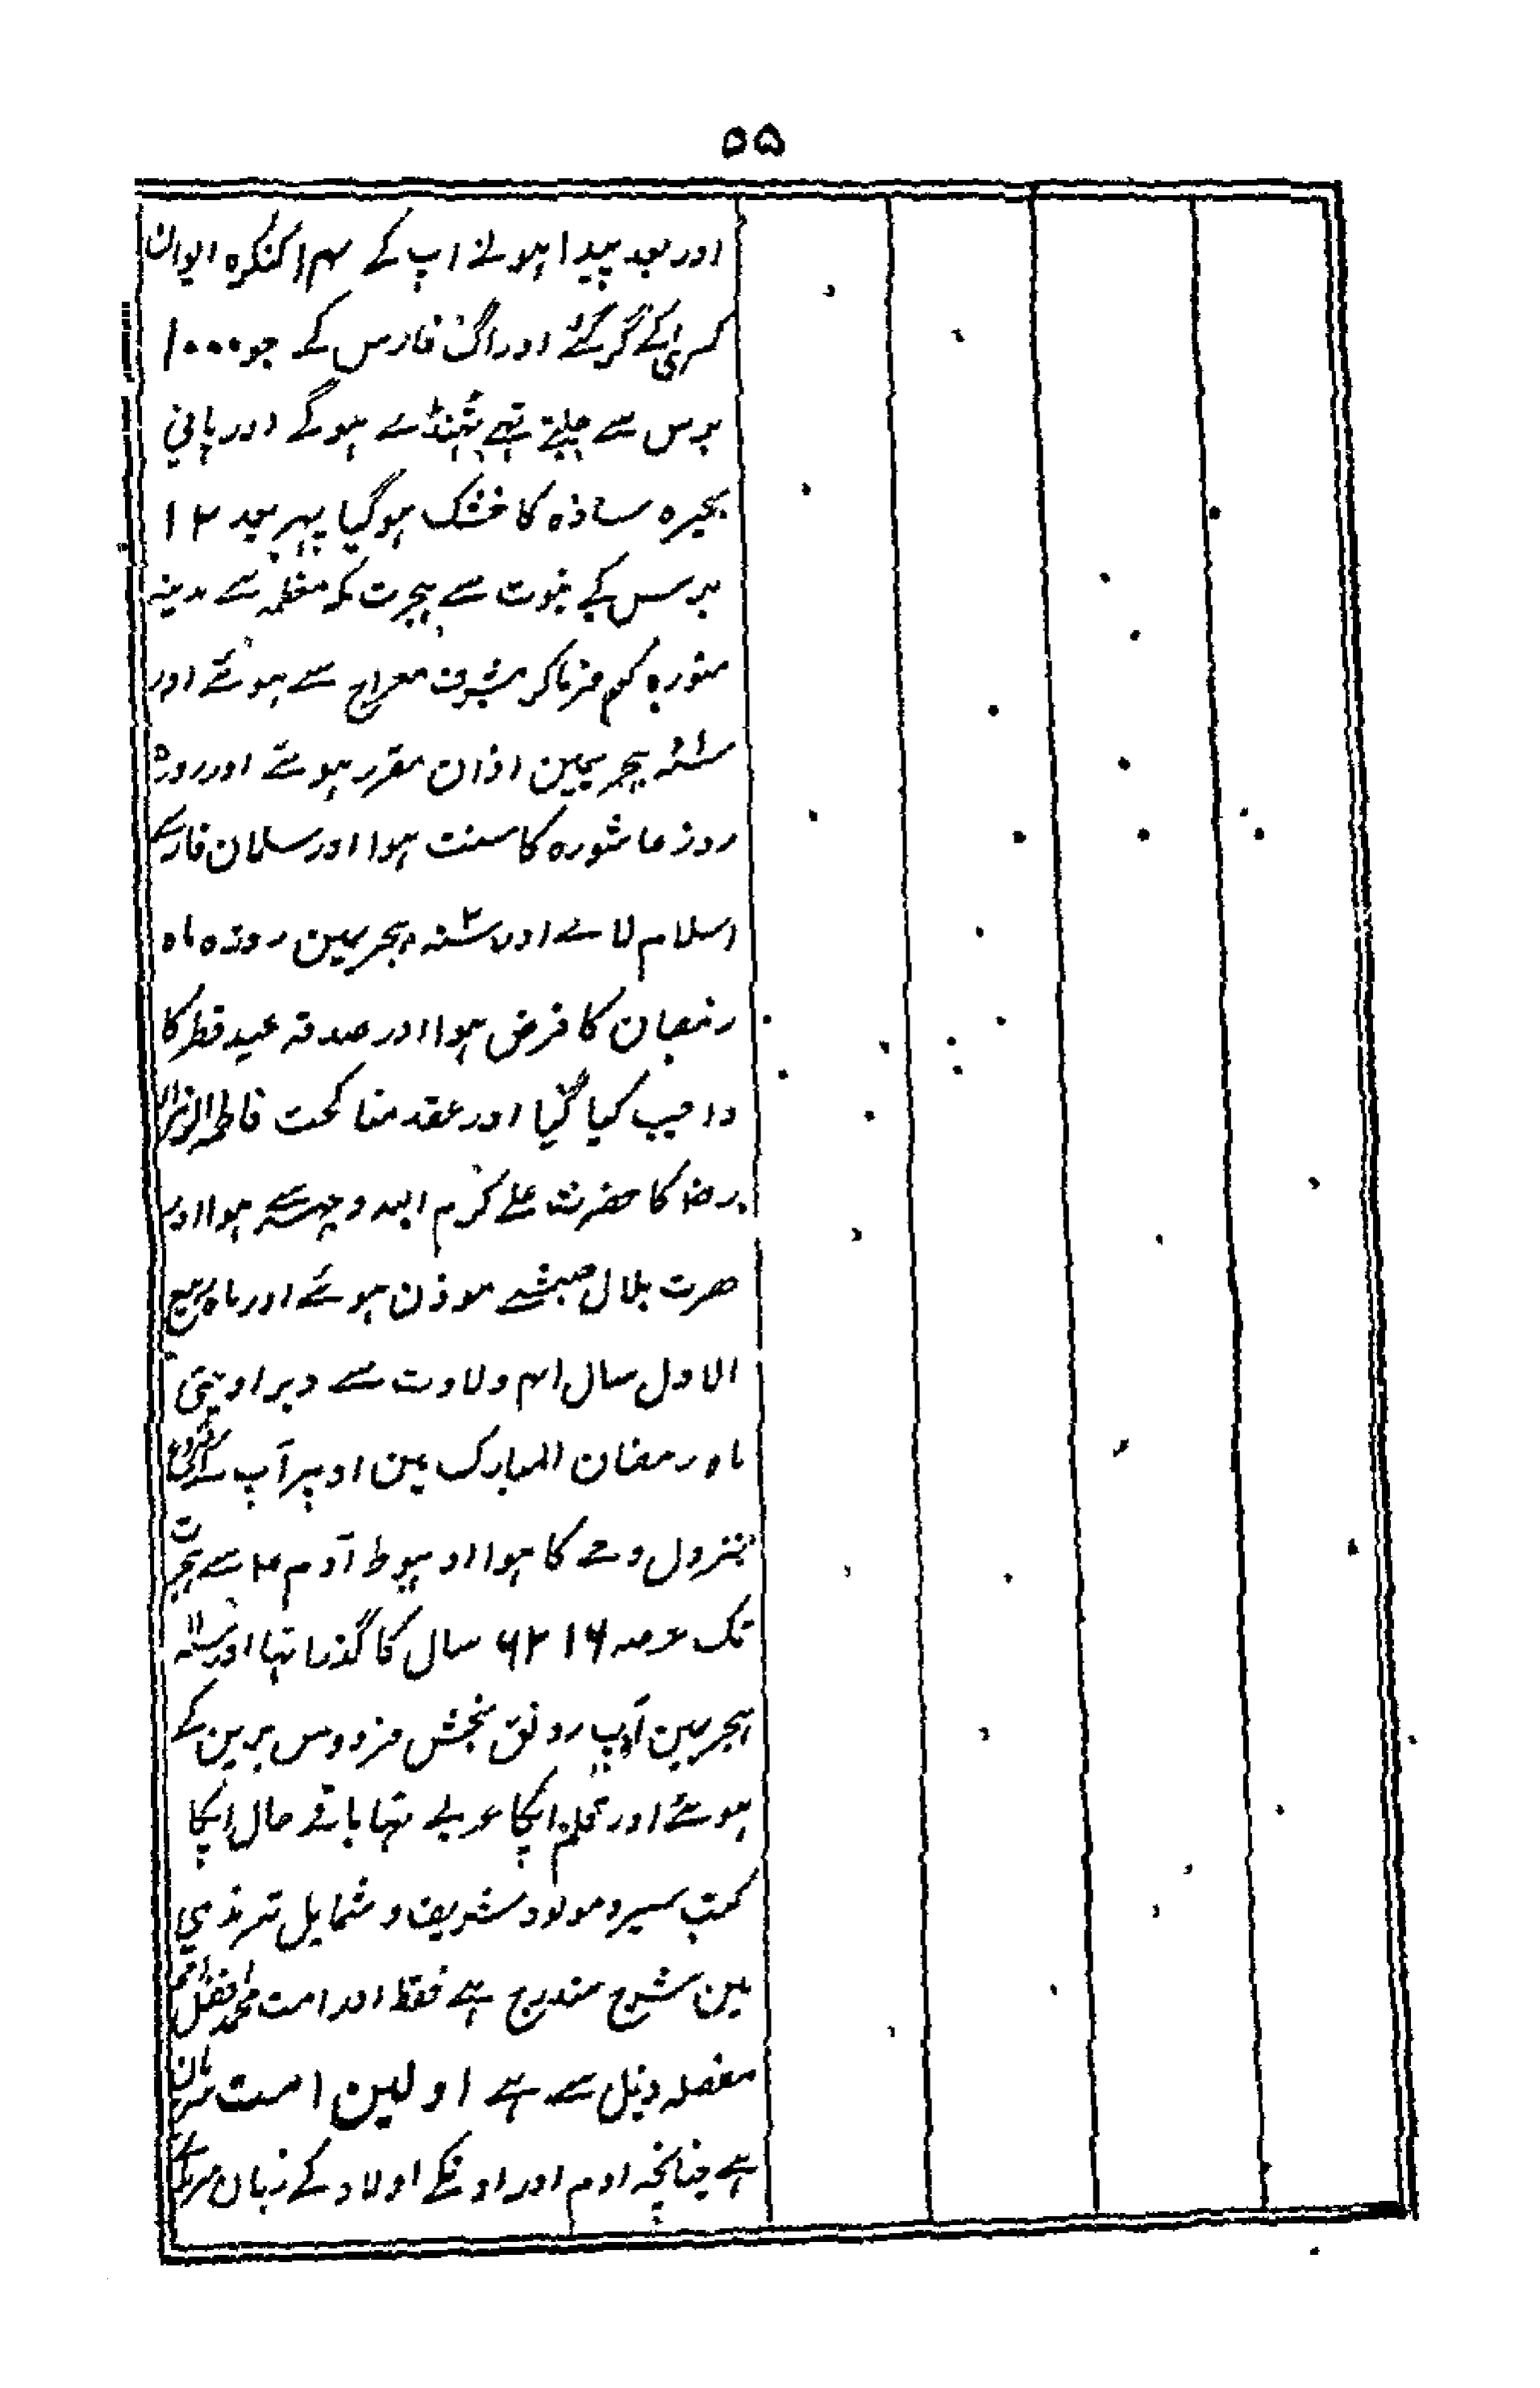 ۵۵
اور بعد پیدا ہونے اپ کے ۱۴ کنگرہ ایوان
کسریٰ کے گر گئے اور اگ فارس کے جو ۱۰۰۰
برس سے جلتے تہے ٹہنڈے ہو گے اور پانی
بحیرہ ساذہ کا خشک ہو گیا پہر بعد ۱۲
برس کے نبوت سے ہجرت مکہ معظمہ سے مدینہ
منورہ کو فرما کر مشرف معراج سے ہوئے اور
سنہ ۱ ہجریمین اذان مقرر ہوئے اور روزہ
روز عاشورہ کا سنت ہوا اور سلمان فارسے
اسلام لاے اور سنہ ۲ ہجریمین روزہ ماہ
رمضان کا فرض ہوا اور صدقہ عید فطر کا
واجب کیا گیا اور عقد مناکحت فاطمہ الزہرا
رضہ کا حضرت علے کرم اللہ وجہہ سے ہوا اور
حضرت بلال حبشے موذن ہوئے اور ماہ ربیع
الاول سال ۴۱ ولادت سے دیر اویتی
ماہ رمضان المبارک مین اوپر آپ کے
نزول وحے کا ہوا او ہبوط آدم ۴ سے ہجرت
تک عرصہ ۶۲۱۶ سال کا گذرا تہا اور سنہ ۱۱
ہجریمین آپ رونق بخش فردوس برین کے
ہوئے اور تکلم اپکا عربے تہا باقے حال اپکا
کتب سیر و مولود شریف و شمایل ترمذی
مین مشرح مندرج ہے فقط اور امت محمد افضل
مفصلہ ذیل سے ہے اولین امت
ہے چنانچہ ادم اور اونکے اولاد کے زبان